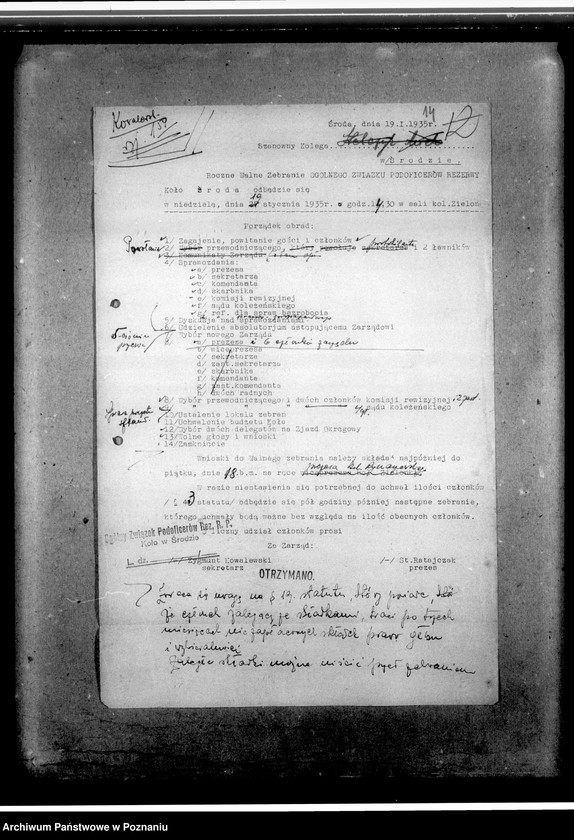 Kowalewski
14
Środa, dnia 19.I.1935r.
12
Szanowny Kolega
w/Środzie.
Roczne Walne Zebranie OGOLNEGO ZWIAZKU PODOFICERÓW REZERWY
Koło Środa odbędzie się
w niedzielę, dnia stycznia 1935r. o godz. .30 w sali kol.Zielon
Porządek obrad:
1/ Zagajenie, powitanie gości i członków
2/ Wybór przewodniczącego, i 2 ławników
3/ Komunikaty Zarządu
4/ Sprawozdania:
a/ prezesa
b/ sekretarza
c/ komendanta
d/ skarbnika
e/ komisji rewizyjnej
f/ sądu koleżeńskiego
g/ ref. dla spraw bezrobocia
5/ Dyskusja nad sprawozdaniami
6/ Udzielenie absolutorjum ustępującemu Zarządowi
Wybór nowego Zarządu
a/ prezesa i 6 członków zarządu
b/ wiceprezesa
c/ sekretarza
d/ zast.sekretarza
e/ skarbnika
f/ komendanta
g/ zast.komendanta
h/ dwóch radnych
8/ Wybór przewodniczącego i dwóch członków komisji rewizyjnej
sądu koleżeńskiego
10/Ustalenie lokalu zebran
11/Uchwalenie budżetu Koła
12/Wybór dwóch delegatów na Zjazd Okręgowy
13/Wolne głosy i wnioski
14/Zamknięcie
Wnioski do Walnego zebrania należy składać najpóźniej do
piątku, dnia 18.b.m. na ręce
W razie niestawienia się potrzebnej do uchwał ilości członków
/§ 3 statutu/ odbędzie się pół godziny później następne zebranie,
którego uchwały będą ważne bez względu na ilość obecnych członków.
O liczny udział członków prosi
Ogólny Związek Podoficerów Rez. R. P.
Koło w Środzie
L. dz.
Za Zarząd:
/-/ Zygmunt Kowalewski /-/ St.Ratajczak
sekretarz prezes
OTRZYMANO.
Zwraca się uwagę na § 19. statutu, który powiada,
że członek zalegający ze składkami, traci po trzech
miesiącach niezapłaconych składek prawo głosu
i wybieralności
Zaległe składki można uiścić przed zebraniem
Archiwum Państwowe w Poznaniu